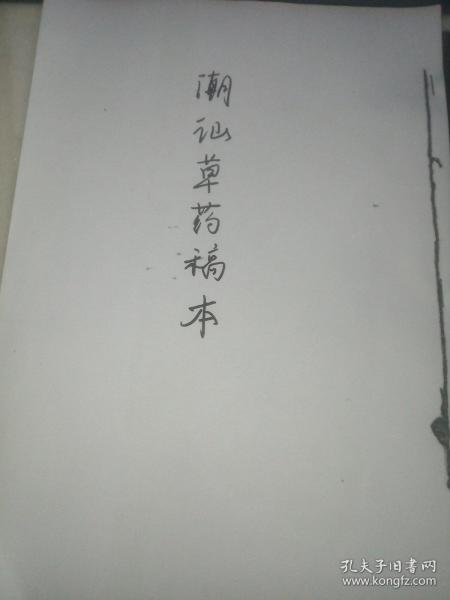 潮汕草药稿本
孔夫子旧书网
www.kongfz.com